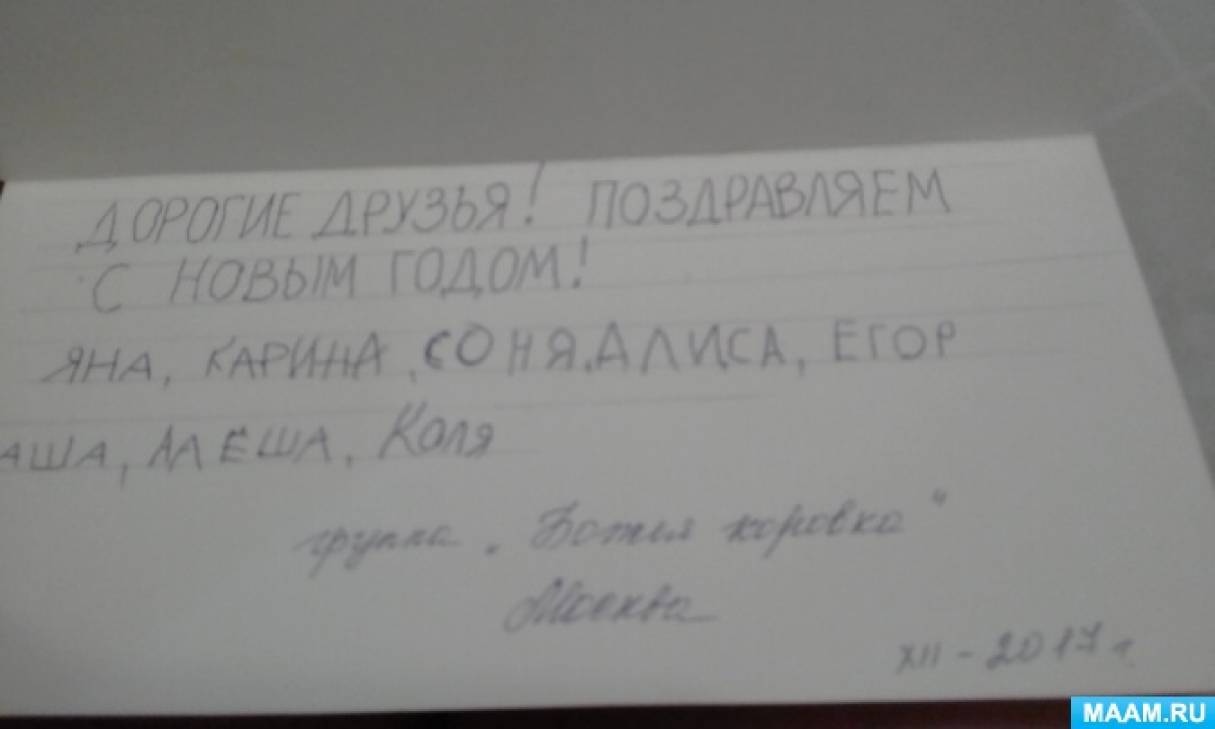 ДОРОГИЕ ДРУЗЬЯ! ПОЗДРАВЛЯЕМ
С НОВЫМ ГОДОМ!
ЯНА, КАРИНА, СОНЯ, АЛИСА, ЕГОР
АША, АЛЁША, Коля
группа „Божья коровка"
Москва
XII - 2017 г.
MAAM.RU